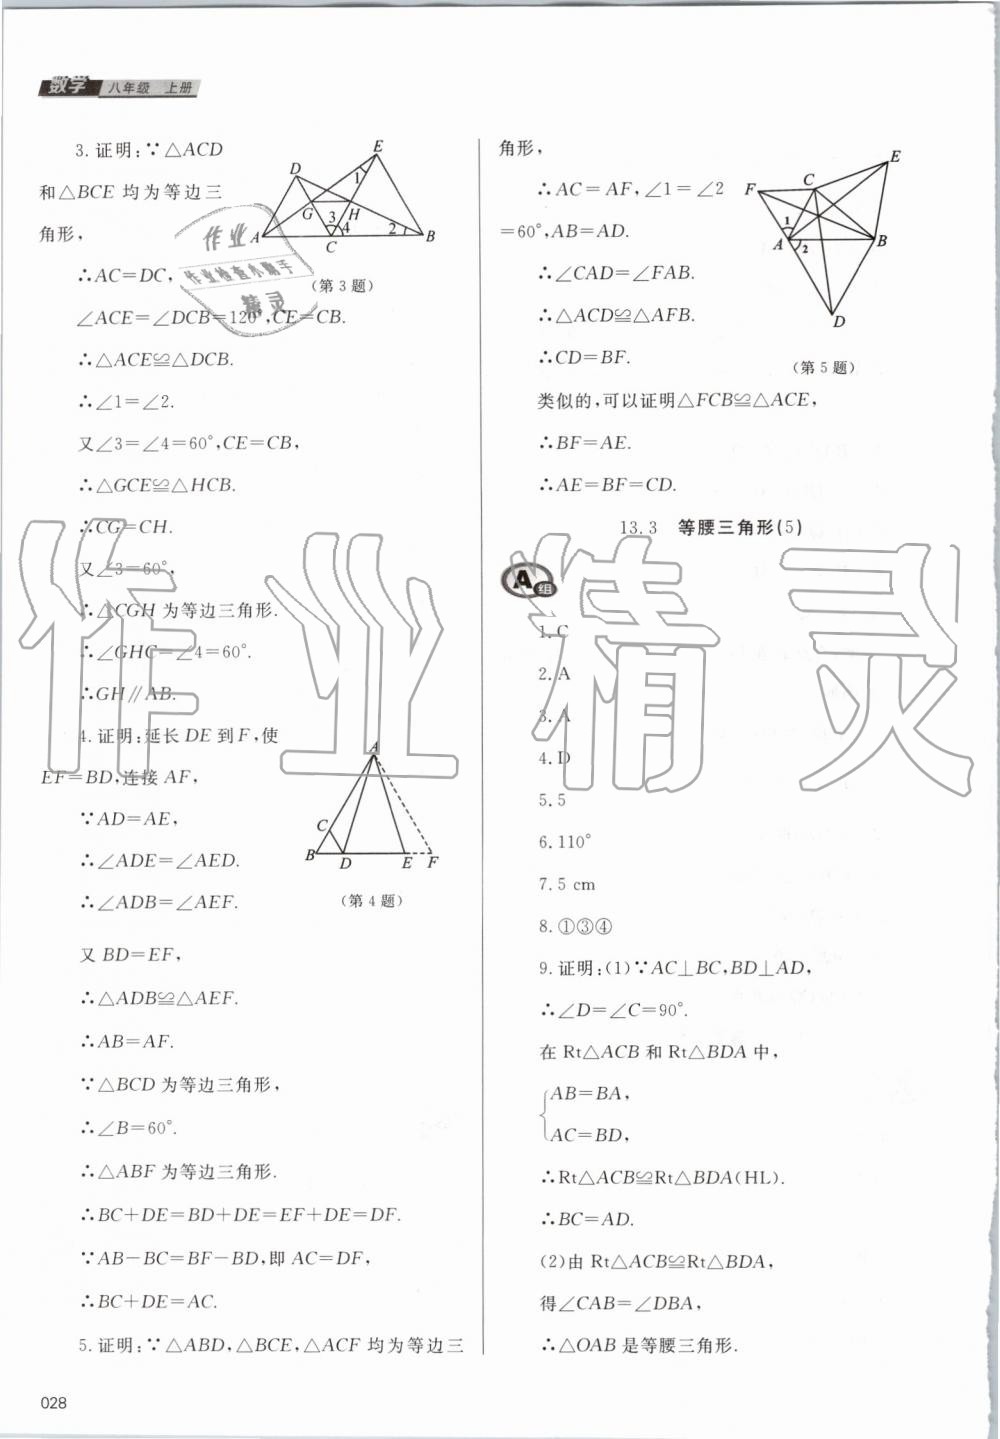 数学 八年级 上册
3.证明:∵△ACD
和△BCE 均为等边三
角形,
∴AC=DC,
∠ACE=∠DCB=120°,CE=CB.
∴△ACE≌△DCB.
∴∠1=∠2.
又∠3=∠4=60°,CE=CB,
∴△GCE≌△HCB.
∴CG=CH.
又∠3=60°,
∴△CGH 为等边三角形.
∴∠GHC=∠4=60°.
∴GH∥AB.
D
E
1
G
3
H
4
2
A
C
B
(第3题)
作业
作业检查小助手
精灵
4.证明:延长 DE 到 F,使
EF=BD,连接 AF,
∵AD=AE,
∴∠ADE=∠AED.
∴∠ADB=∠AEF.
又 BD=EF,
∴△ADB≌△AEF.
∴AB=AF.
∵△BCD 为等边三角形,
∴∠B=60°.
∴△ABF 为等边三角形.
∴BC+DE=BD+DE=EF+DE=DF.
∵AB-BC=BF-BD,即 AC=DF,
∴BC+DE=AC.
A
C
B
D
E
F
(第4题)
5.证明:∵△ABD,△BCE,△ACF 均为等边三
角形,
∴AC=AF,∠1=∠2
=60°,AB=AD.
∴∠CAD=∠FAB.
∴△ACD≌△AFB.
∴CD=BF.
类似的,可以证明△FCB≌△ACE,
∴BF=AE.
∴AE=BF=CD.
E
F
C
1
A
2
B
D
(第5题)
13.3 等腰三角形(5)
A组
1.C
2.A
3.A
4.D
5.5
6.110°
7.5 cm
8.①③④
9.证明:(1)∵AC⊥BC,BD⊥AD,
∴∠D=∠C=90°.
在 Rt△ACB 和 Rt△BDA 中,
AB=BA,
AC=BD,
∴Rt△ACB≌Rt△BDA(HL).
∴BC=AD.
(2)由 Rt△ACB≌Rt△BDA,
得∠CAB=∠DBA,
∴△OAB 是等腰三角形.
作业精灵
028